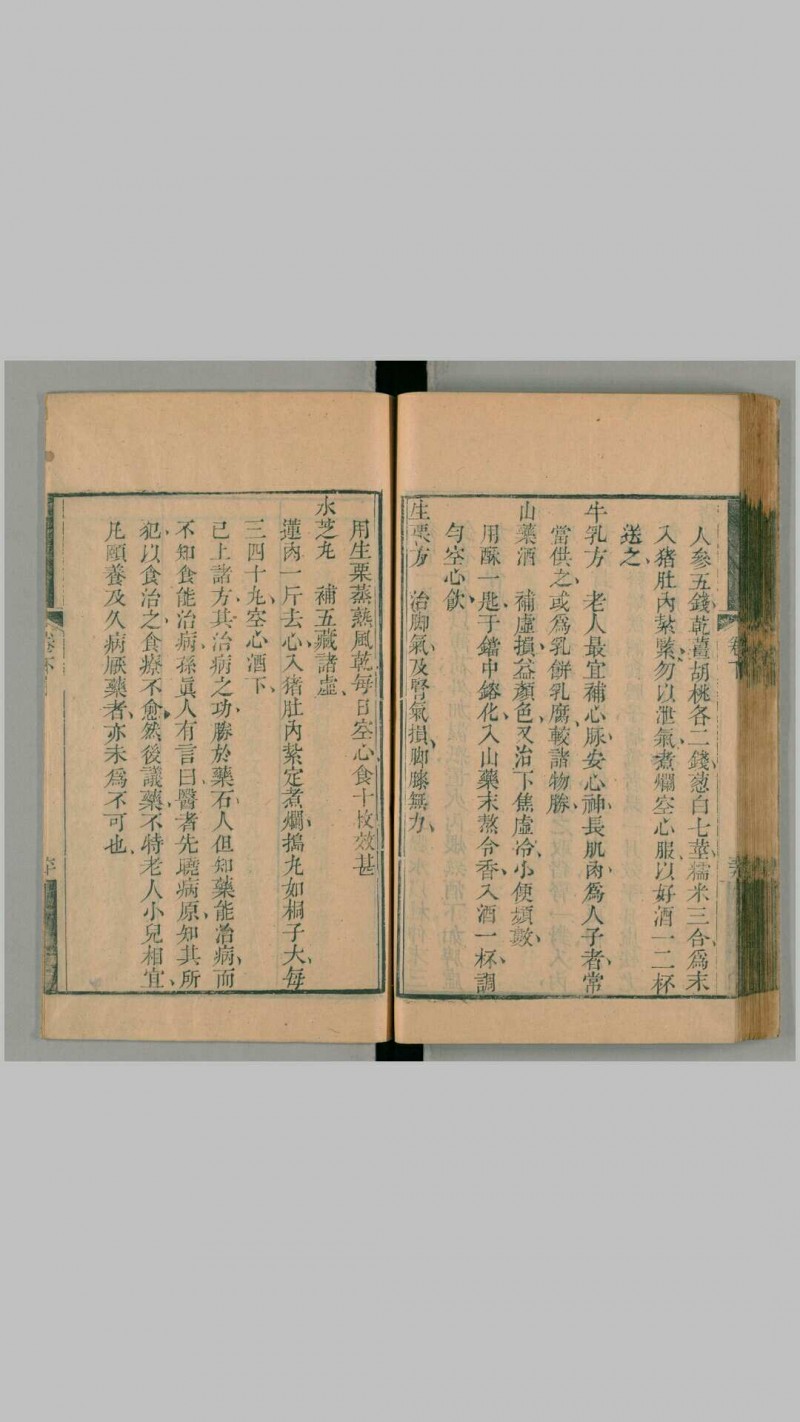 人參五錢乾薑胡桃各二錢葱白七莖、糯米三合、爲末
入猪肚內紮緊、勿以泄氣、煮爛空心服、以好酒一二杯
送之、
牛乳方　老人最宜補心脉、安心神、長肌肉、爲人子者、常
當供之、或爲乳餅乳腐、較諸物勝、
山藥酒　補虛損、益顏色、又治下焦虛冷、小便頻數、
用酥一匙、于鐺中鎔化、入山藥末熬令香、入酒一杯、調
勻空心飲、
生栗方　治脚氣、及腎氣損、脚膝無力、
卷下
用生栗蒸熟風乾、每日空心食十枚效甚
水芝丸　補五藏諸虛、
蓮肉一斤去心、入猪肚內紮定煮爛、搗丸如桐子大、每
三四十丸、空心酒下、
已上諸方、其治病之功、勝於藥石、人但知藥能治病、而
不知食能治病、孫眞人有言曰、醫者先曉病原、知其所
犯、以食治之、食療不愈、然後議藥、不特老人小兒相宜、
凡頤養及久病厭藥者、亦未爲不可也、
卷下